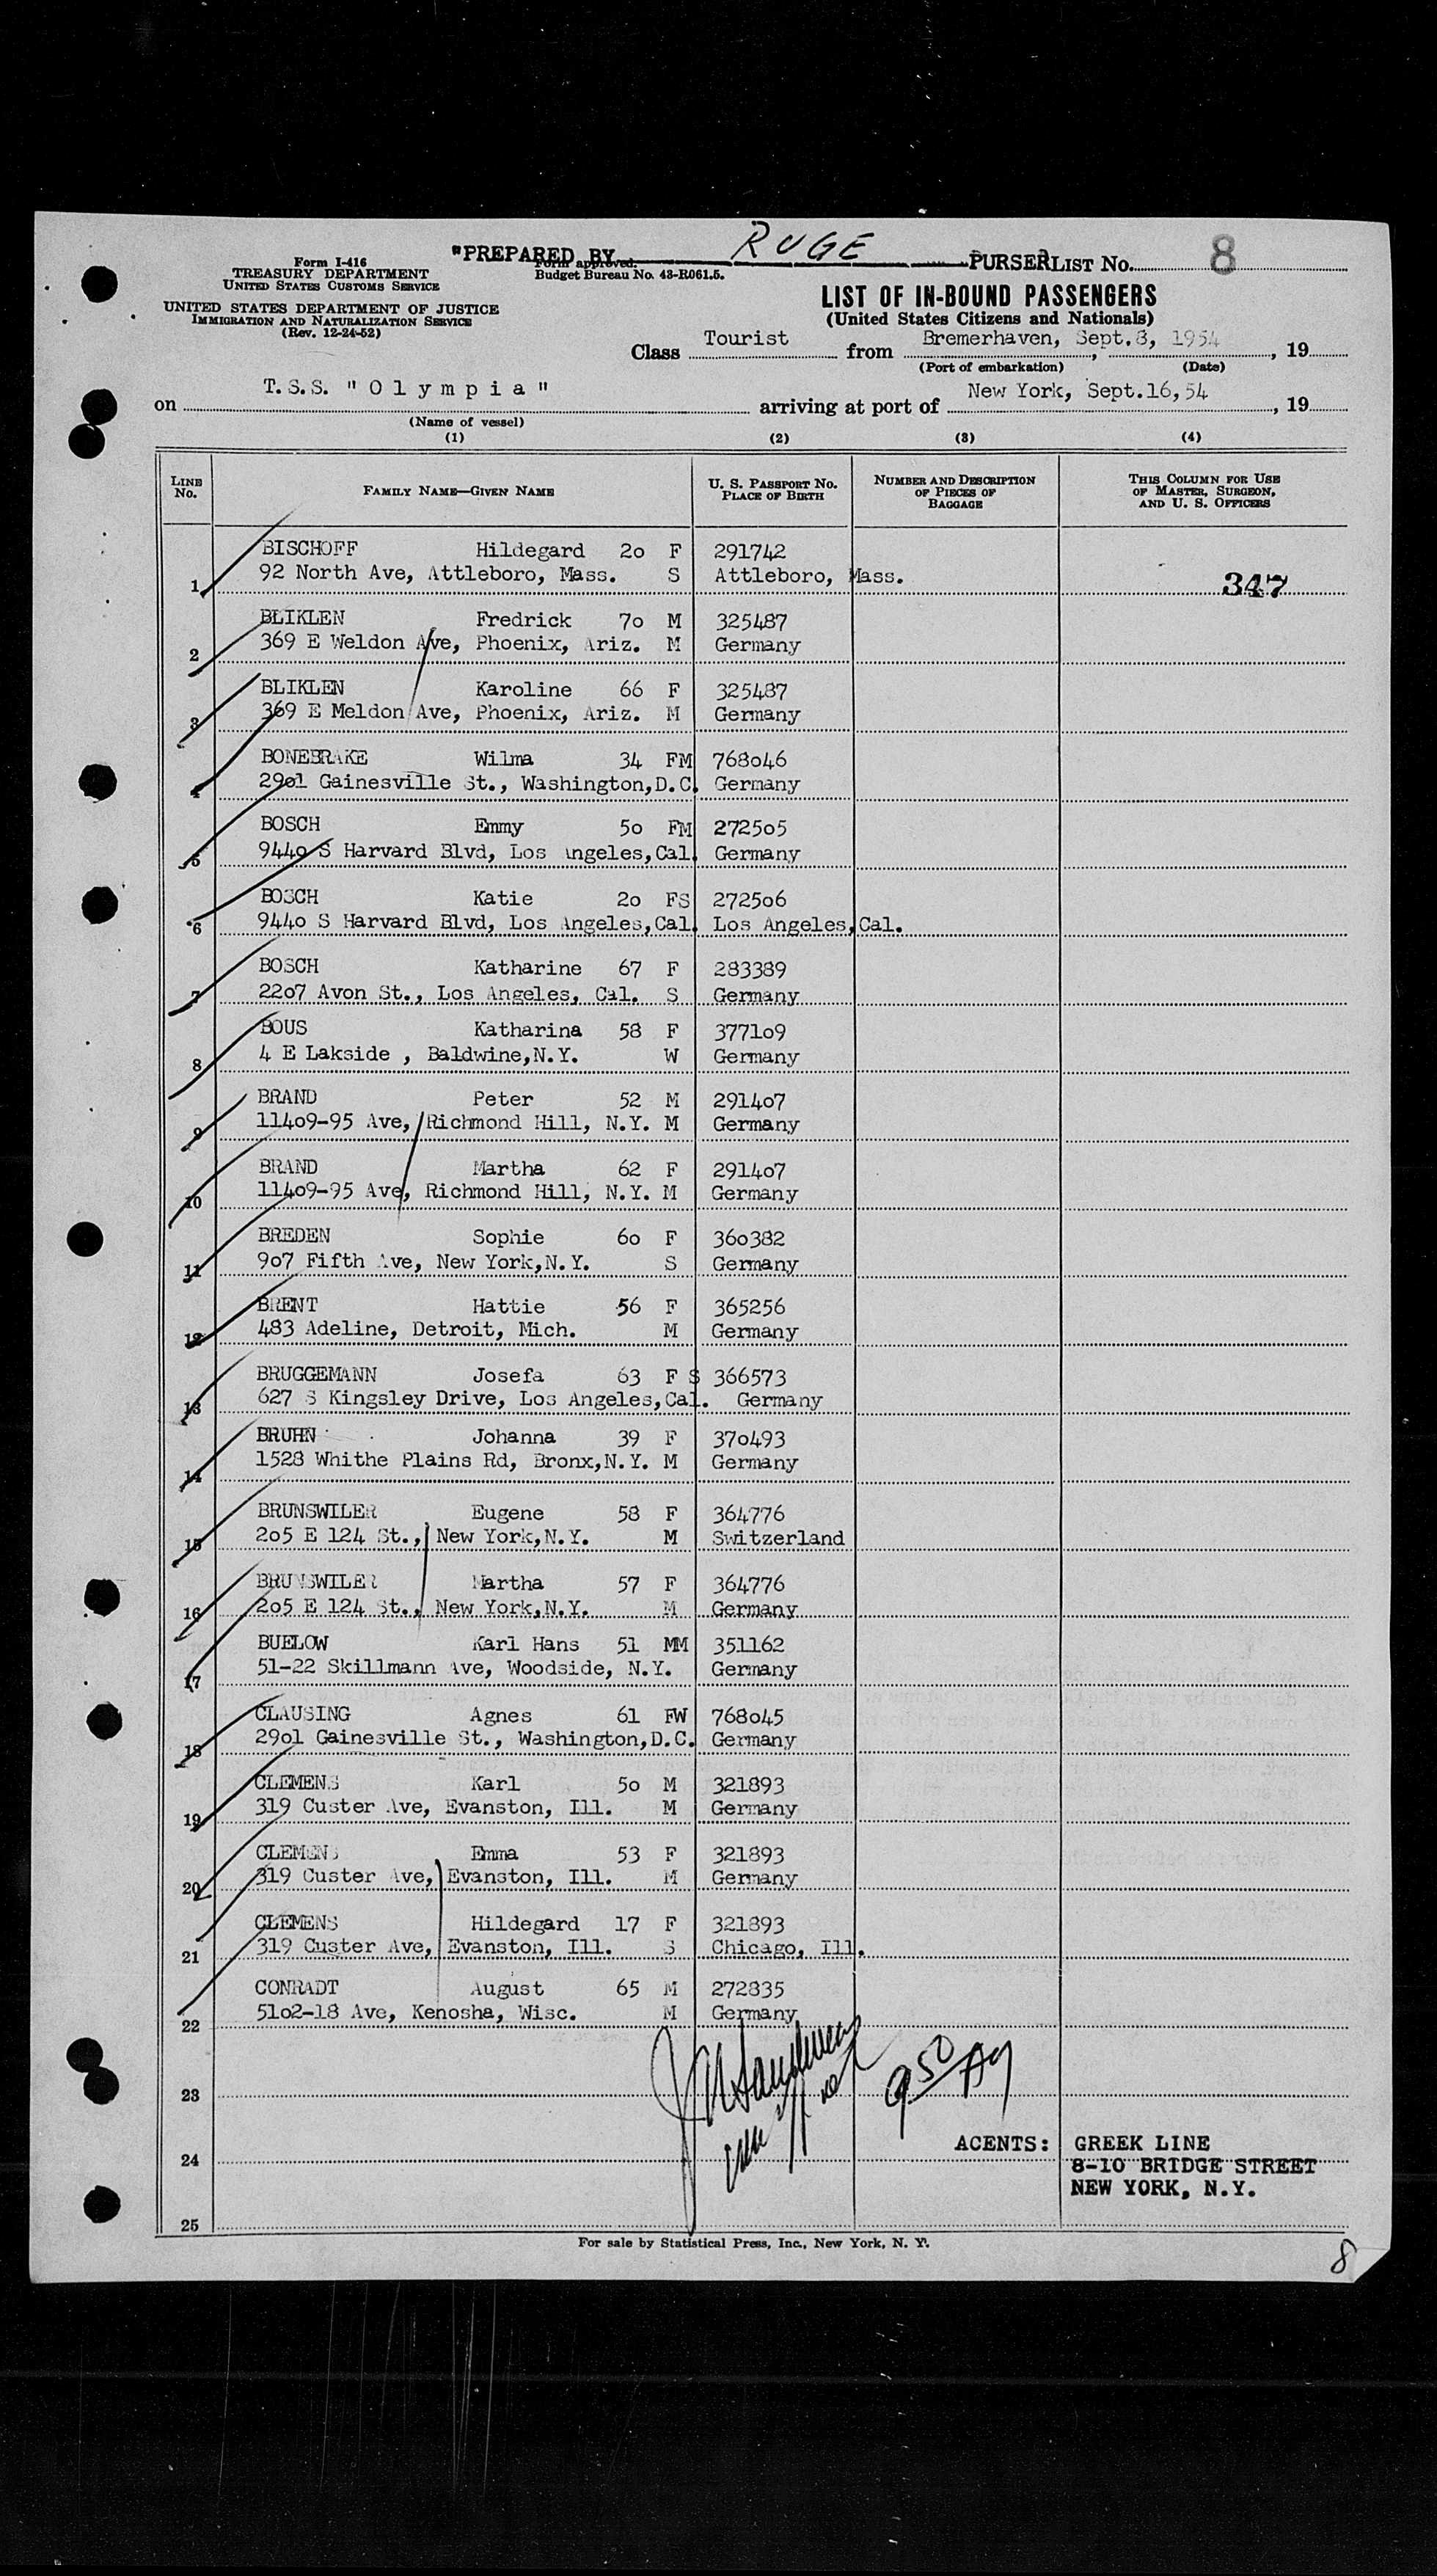 "PREPARED BY RUGE PURSER LIST No. 8
Form I-416
TREASURY DEPARTMENT
UNITED STATES CUSTOMS SERVICE
Form approved.
Budget Bureau No. 43-R061.5.
UNITED STATES DEPARTMENT OF JUSTICE
IMMIGRATION AND NATURALIZATION SERVICE
(Rev. 12-24-52)
LIST OF IN-BOUND PASSENGERS
(United States Citizens and Nationals)
Class Tourist from Bremerhaven, Sept.8, 1954, 19
(Port of embarkation) (Date)
on T.S.S. "Olympia" arriving at port of New York, Sept.16,54, 19
(Name of vessel)
(1) (2) (3) (4)
LINE No. FAMILY NAME—GIVEN NAME U. S. PASSPORT No. PLACE OF BIRTH NUMBER AND DESCRIPTION OF PIECES OF BAGGAGE THIS COLUMN FOR USE OF MASTER, SURGEON, AND U. S. OFFICERS
BISCHOFF Hildegard 2o F 291742
1 92 North Ave, Attleboro, Mass. S Attleboro, Mass. 347
BLIKLEN Fredrick 7o M 325487
2 369 E Weldon Ave, Phoenix, Ariz. M Germany
BLIKLEN Karoline 66 F 325487
3 369 E Meldon Ave, Phoenix, Ariz. M Germany
BONEBRAKE Wilma 34 FM 768o46
4 29o1 Gainesville St., Washington,D.C. Germany
BOSCH Emmy 5o FM 2725o5
5 944o S Harvard Blvd, Los Angeles,Cal. Germany
BOSCH Katie 2o FS 2725o6
6 944o S Harvard Blvd, Los Angeles,Cal. Los Angeles,Cal.
BOSCH Katharine 67 F 283389
7 22o7 Avon St., Los Angeles, Cal. S Germany
BOUS Katharina 58 F 3771o9
8 4 E Lakside , Baldwine,N.Y. W Germany
BRAND Peter 52 M 2914o7
9 114o9-95 Ave, Richmond Hill, N.Y. M Germany
BRAND Martha 62 F 2914o7
10 114o9-95 Ave, Richmond Hill, N.Y. M Germany
BREDEN Sophie 6o F 36o382
11 9o7 Fifth Ave, New York,N.Y. S Germany
BRENT Hattie 56 F 365256
12 483 Adeline, Detroit, Mich. M Germany
BRUGGEMANN Josefa 63 F S 366573
13 627 S Kingsley Drive, Los Angeles,Cal. Germany
BRUHN Johanna 39 F 37o493
14 1528 Whithe Plains Rd, Bronx,N.Y. M Germany
BRUNSWILER Eugene 58 F 364776
15 2o5 E 124 St., New York,N.Y. M Switzerland
BRUNSWILER Martha 57 F 364776
16 2o5 E 124 St., New York,N.Y. M Germany
BUELOW Karl Hans 51 MM 351162
17 51-22 Skillmann Ave, Woodside, N.Y. Germany
CLAUSING Agnes 61 FW 768o45
18 29o1 Gainesville St., Washington,D.C. Germany
CLEMENS Karl 5o M 321893
19 319 Custer Ave, Evanston, Ill. M Germany
CLEMENS Emma 53 F 321893
20 319 Custer Ave, Evanston, Ill. M Germany
CLEMENS Hildegard 17 F 321893
21 319 Custer Ave, Evanston, Ill. S Chicago, Ill.
CONRADT August 65 M 272835
22 51o2-18 Ave, Kenosha, Wisc. M Germany
23 9 50
24 AGENTS: GREEK LINE
8-10 BRIDGE STREET
NEW YORK, N.Y.
25
For sale by Statistical Press, Inc., New York, N. Y.
8